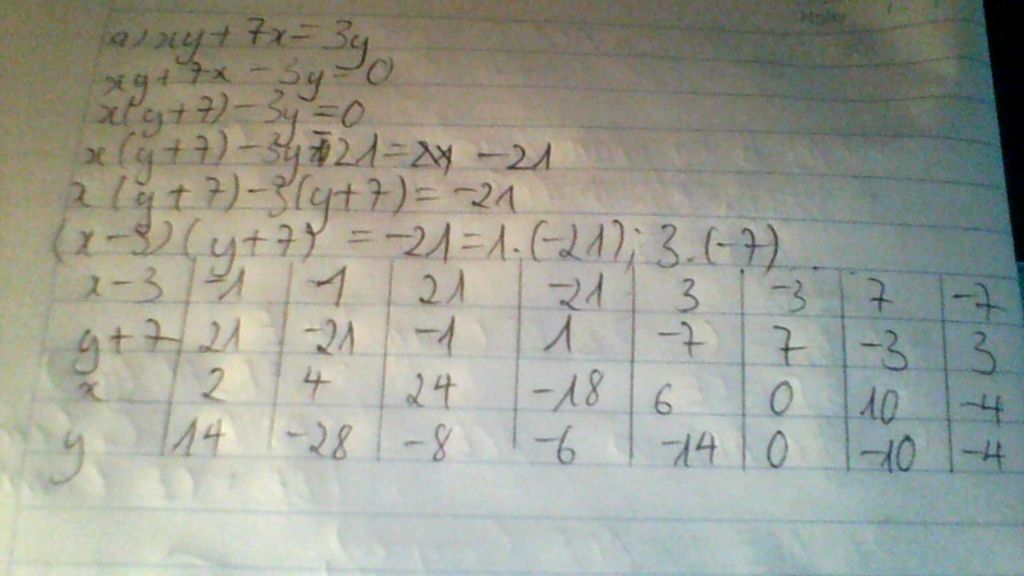 a) xy + 7x = 3y
xy + 7x - 3y = 0
x(y+7) - 3y = 0
x(y+7) - 3y - 21 = -21
x(y+7) - 3(y+7) = -21
(x-3)(y+7) = -21 = 1.(-21); 3.(-7)
x-3 -1 1 21 -21 3 -3 7 -7
y+7 21 -21 -1 1 -7 7 -3 3
x 2 4 24 -18 6 0 10 -4
y 14 -28 -8 -6 -14 0 -10 -4